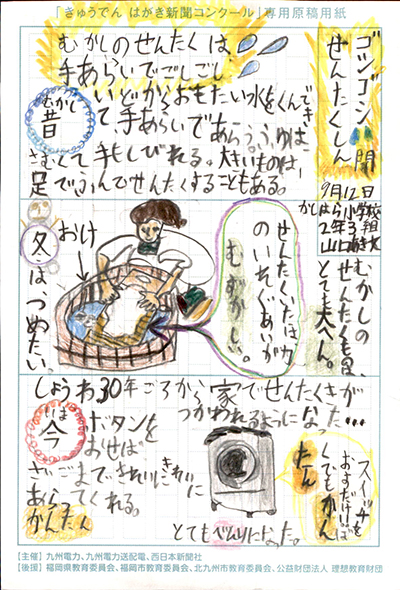 「きゅうでん はがき新聞コンクール」専用原稿用紙
ゴシゴシ
せんたくしん聞
9月12日
小学校
2年3組
山口
むかしのせんたくは、
手あらいでごしごし
昔
むかし
いどからおもたい水をくんでき
て、手あらいであらう。ふゆは、
さむくて手もしびれる。大きいものは、
足でふんでせんたくすることもある。
むかしの、
とても大へん。
せんたくいたは力
のいれぐあいが
むずかしい。
おけ
冬は、つめたい。
しょうわ30年ごろから家でせんたくきが
つかわれるようになった…
今
ボタンを
おせば
さいごまできれいにきれいに
あらってくれる。
かんたん
おすだけで
かん
たん
とてもべんりになった。
【主催】九州電力、九州電力送配電、西日本新聞社
【後援】福岡県教育委員会、福岡市教育委員会、北九州市教育委員会、公益財団法人 理想教育財団